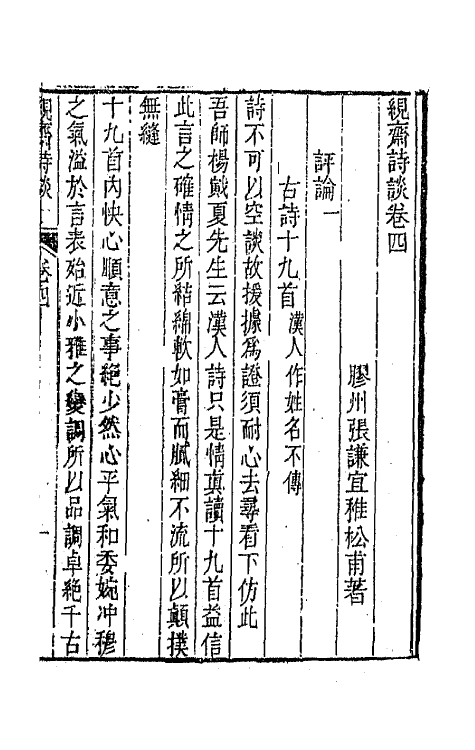 絸齋詩談卷四
膠州張謙宜稚松甫著
評論一
古詩十九首漢人作姓名不傳
詩不可以空談故援據為證須耐心去尋看下仿此
吾師楊戭夏先生云漢人詩只是情真讀十九首益信
此言之確情之所結綿軟如膏而膩細不流所以顛撲
無縫
十九首內快心順意之事絕少然心平氣和委婉冲穆
之氣溢於言表始近小雅之變調所以品調卓絕千古
絸齋詩談
卷四
一